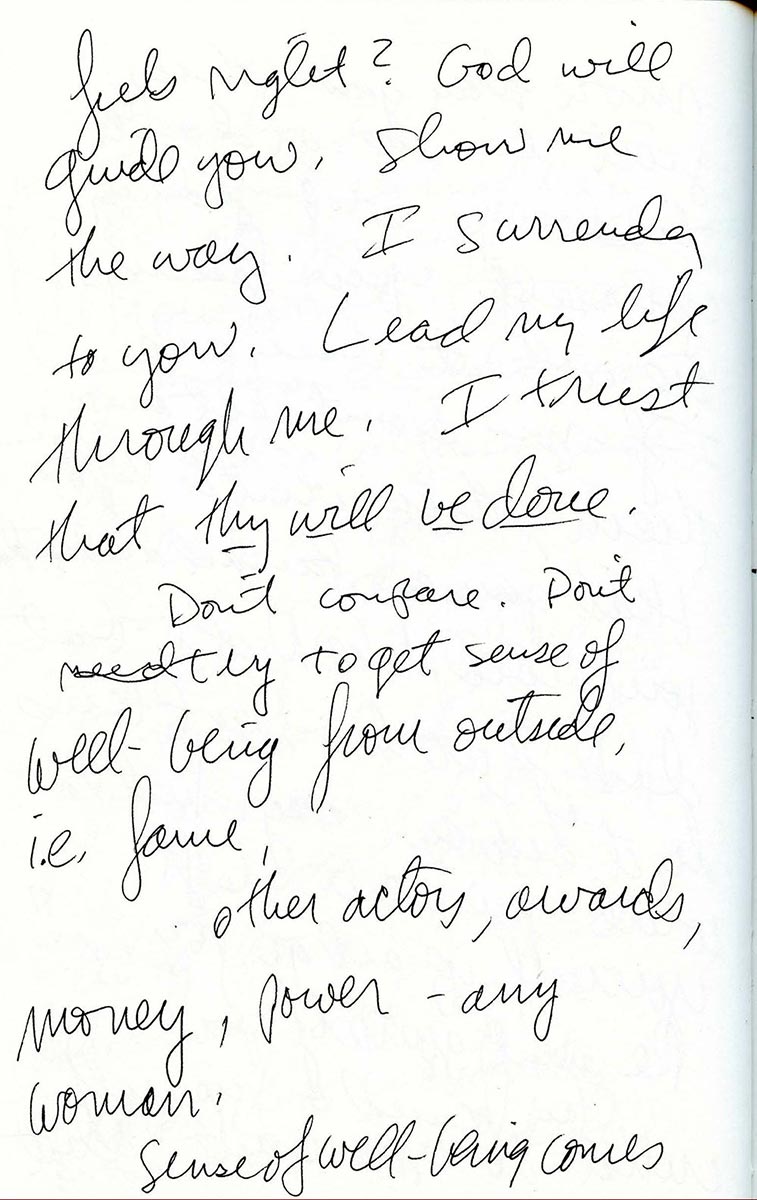 feels right? God will
guide you. Show me
the way. I surrender
to you. Lead my life
through me. I trust
that thy will be done.
Don't compare. Don't
need try to get sense of
well-being from outside,
i.e. fame,
other actors, awards,
money, power - any
woman.
Sense of well-being comes